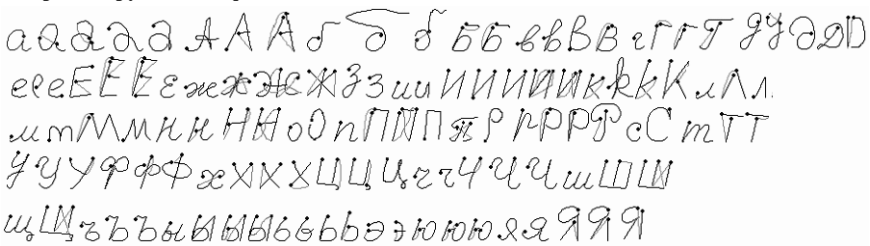 а а а а а А А А б б б Б Б в в В В г Г г Г д У д Д D
е е е Е Е Е Е ж ж Ж Ж З З и и И И И И И к k k К л Л л
м т М м Н н Н Н о О п П П П п Р р Р Р Р с С т Т Т
У У У Ф ф Ф х Х Х Х Ц Ц Ц ч ч Ч Ч Ч ш Ш Ш
щ Щ ъ Ъ Ъ ы Ы Ы Ы ь ь Ь ь э э ю ю ю я я Я Я Я